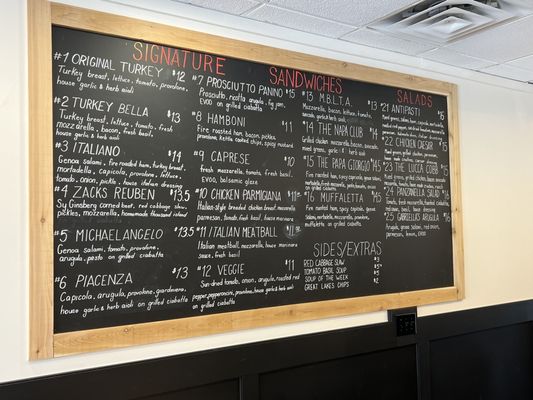 SIGNATURE
SANDWICHES
#1 ORIGINAL TURKEY $12
Turkey breast, lettuce, tomato, provolone,
house garlic & herb aioli
#2 TURKEY BELLA $13
Turkey breast, lettuce, tomato, fresh
mozzarella, bacon, fresh basil,
house garlic & herb aioli
#3 ITALIANO $14
Genoa salami, fire roasted ham, turkey breast,
mortadella, capicola, provolone, lettuce,
tomato, onion, pickle, house italian dressing
#4 ZACKS REUBEN $13.5
Sy Ginsberg corned beef, red cabbage slaw,
pickles, mozzarella, homemade thousand island
#5 MICHAELANGELO $13.5
Genoa salami, tomato, provolone,
arugula, pesto on grilled ciabatta
#6 PIACENZA $13
Capicola, arugula, provolone, giardiniera,
house garlic & herb aioli on grilled ciabatta
#7 PROSCIUTTO PANINO $15
Prosciutto, ricotta, arugula, fig jam,
EVOO on grilled ciabatta
#8 HAMBONI $11
Fire roasted ham, bacon, pickle,
provolone, Kettle cooked chips, spicy mustard
#9 CAPRESE $10
Fresh mozzarella, tomato, fresh basil,
EVOO, balsamic glaze
#10 CHICKEN PARMIGIANA
Italian-style breaded chicken breast, mozzarella,
parmesan, tomato, fresh basil, house marinara
#11 ITALIAN MEATBALL
Italian meatball, mozzarella, house marinara
#12 VEGGIE $11
Sun-dried tomato, onion, arugula, roasted
pepper, pepperoncini, provolone, house garlic & herb
aioli on grilled ciabatta
#13 M.B.L.T.A. $13
Mozzarella, bacon, lettuce, tomato,
#14 THE NAPA CLUB $14
Grilled chicken, mozzarella, bacon, avocado,
mixed greens, garlic & herb aioli
#15 THE PAPA GIORGIO $14.5
#16 MUFFALETTA $15
SIDES/EXTRAS
RED CABBAGE SLAW
TOMATO BASIL SOUP
SOUP OF THE WEEK
GREAT LAKES CHIPS
SALADS
#21 ANTIPASTI
#22 CHICKEN CAESAR
#23 THE LUCCA COBB
#24 PANZANELLA SALAD
#25 GABRIELLA'S ARUGULA